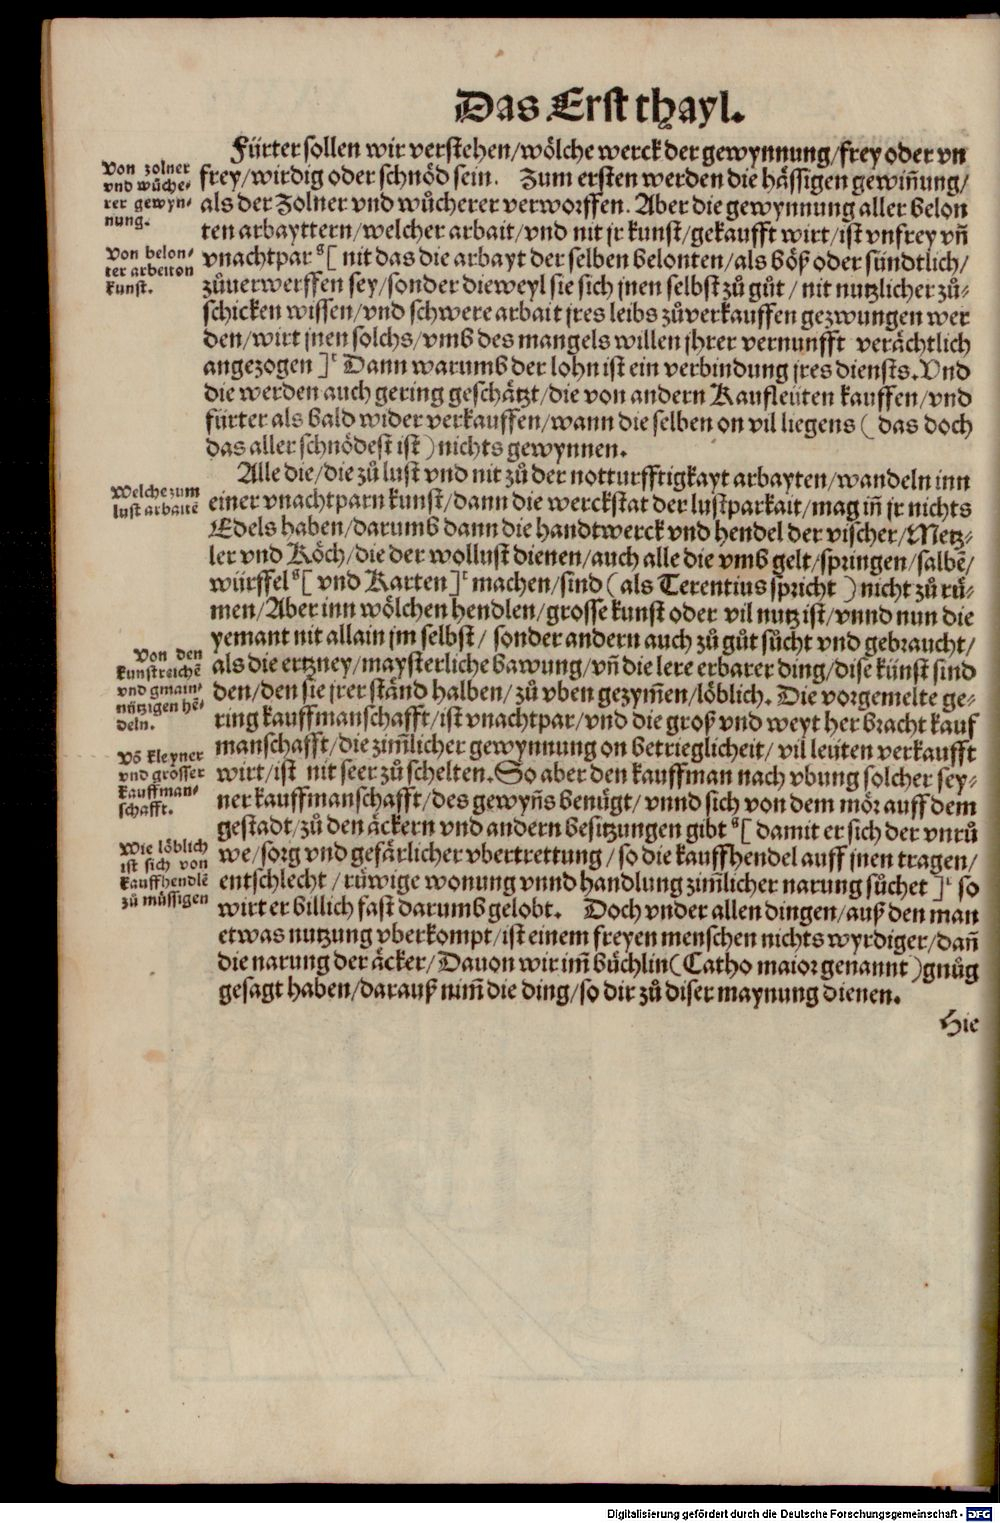 Das Erst thayl.
Fürter sollen wir verstehen/wölche werck der gewynnung/frey oder vn
frey/wirdig oder schnöd sein. Zum ersten werden die hässigen gewin̄ung/
als der Zolner vnd wůcherer verworffen. Aber die gewynnung aller belon
ten arbayttern/welcher arbait/vnd nit jr kunst/gekaufft wirt/ist vnfrey vn̄
vnachtpar ˢ[ nit das die arbayt der selben belonten/als böß oder sündtlich/
zůuerwerffen sey/sonder dieweyl sie sich jnen selbst zů gůt / nit nutzlicher zů-
schicken wissen/vnd schwere arbait jres leibs zůverkauffen gezwungen wer
den/wirt jnen solchs/vmb des mangels willen jhrer vernunfft verächtlich
angezogen ]ᵗ Dann warumb der lohn ist ein verbindung jres diensts. Vnd
die werden auch gering geschätzt/die von andern Kaufleüten kauffen/vnd
fürter als bald wider verkauffen/wann die selben on vil liegens ( das doch
das aller schnödest ist ) nichts gewynnen.
Von zolner
vnd wůche-
rer gewyn-
nung.
Von belon-
ter arbeit on
kunst.
Alle die/die zů lust vnd nit zů der notturfftigkayt arbayten/wandeln inn
einer vnachtparn kunst/dann die werckstat der lustparkait/mag in̄ jr nichts
Edels haben/darumb dann die handtwerck vnd hendel der vischer/Metz-
ler vnd Köch/die der wollust dienen/auch alle die vmb gelt/springen/salbē/
würffel ˢ[ vnd Karten ]ᵗ machen/sind ( als Terentius spricht ) nicht zů rů-
men/Aber inn wölchen hendlen/grosse kunst oder vil nutz ist/vnnd nun die
yemant nit allain jm selbst/ sonder andern auch zů gůt sůcht vnd gebraucht/
als die ertzney/maysterliche bawung/vn̄ die lere erbarer ding/dise künst sind
den/den sie jrer ständ halben/ zů vben gezym̄en/löblich. Die vorgemelte ge-
ring kauffmanschafft/ist vnachtpar/vnd die groß vnd weyt her bracht kauf
manschafft/die zim̄licher gewynnung on betrieglicheit/ vil leüten verkaufft
wirt/ist nit seer zů schelten. So aber den kauffman nach vbung solcher sey-
ner kauffmanschafft/des gewyn̄s benügt/ vnnd sich von dem mör auff dem
gestadt/zů den äckern vnd andern besitzungen gibt ˢ[ damit er sich der vnrů
we/sorg vnd gefärlicher vbertrettung / so die kauffhendel auff jnen tragen/
entschlecht / růwige wonung vnnd handlung zim̄licher narung sůchet ]ᵗ so
wirt er billich fast darumb gelobt. Doch vnder allen dingen/auß den man
etwas nutzung vberkompt/ist einem freyen menschen nichts wyrdiger/dan̄
die narung der äcker/Dauon wir im̄ bůchlin(Catho maior genannt )gnůg
gesagt haben/darauß nim̄ die ding/so dir zů diser maynung dienen.
Welche zum
lust arbaitē
Von den
kunstreichē
vnd gmain-
nützigen hē-
deln.
Vō kleyner
vnd grosser
kauffman-
schafft.
Wie löblich
ist sich von
kauffhendlē
zů müssigen
Hie
Digitalisierung gefördert durch die Deutsche Forschungsgemeinschaft - DFG